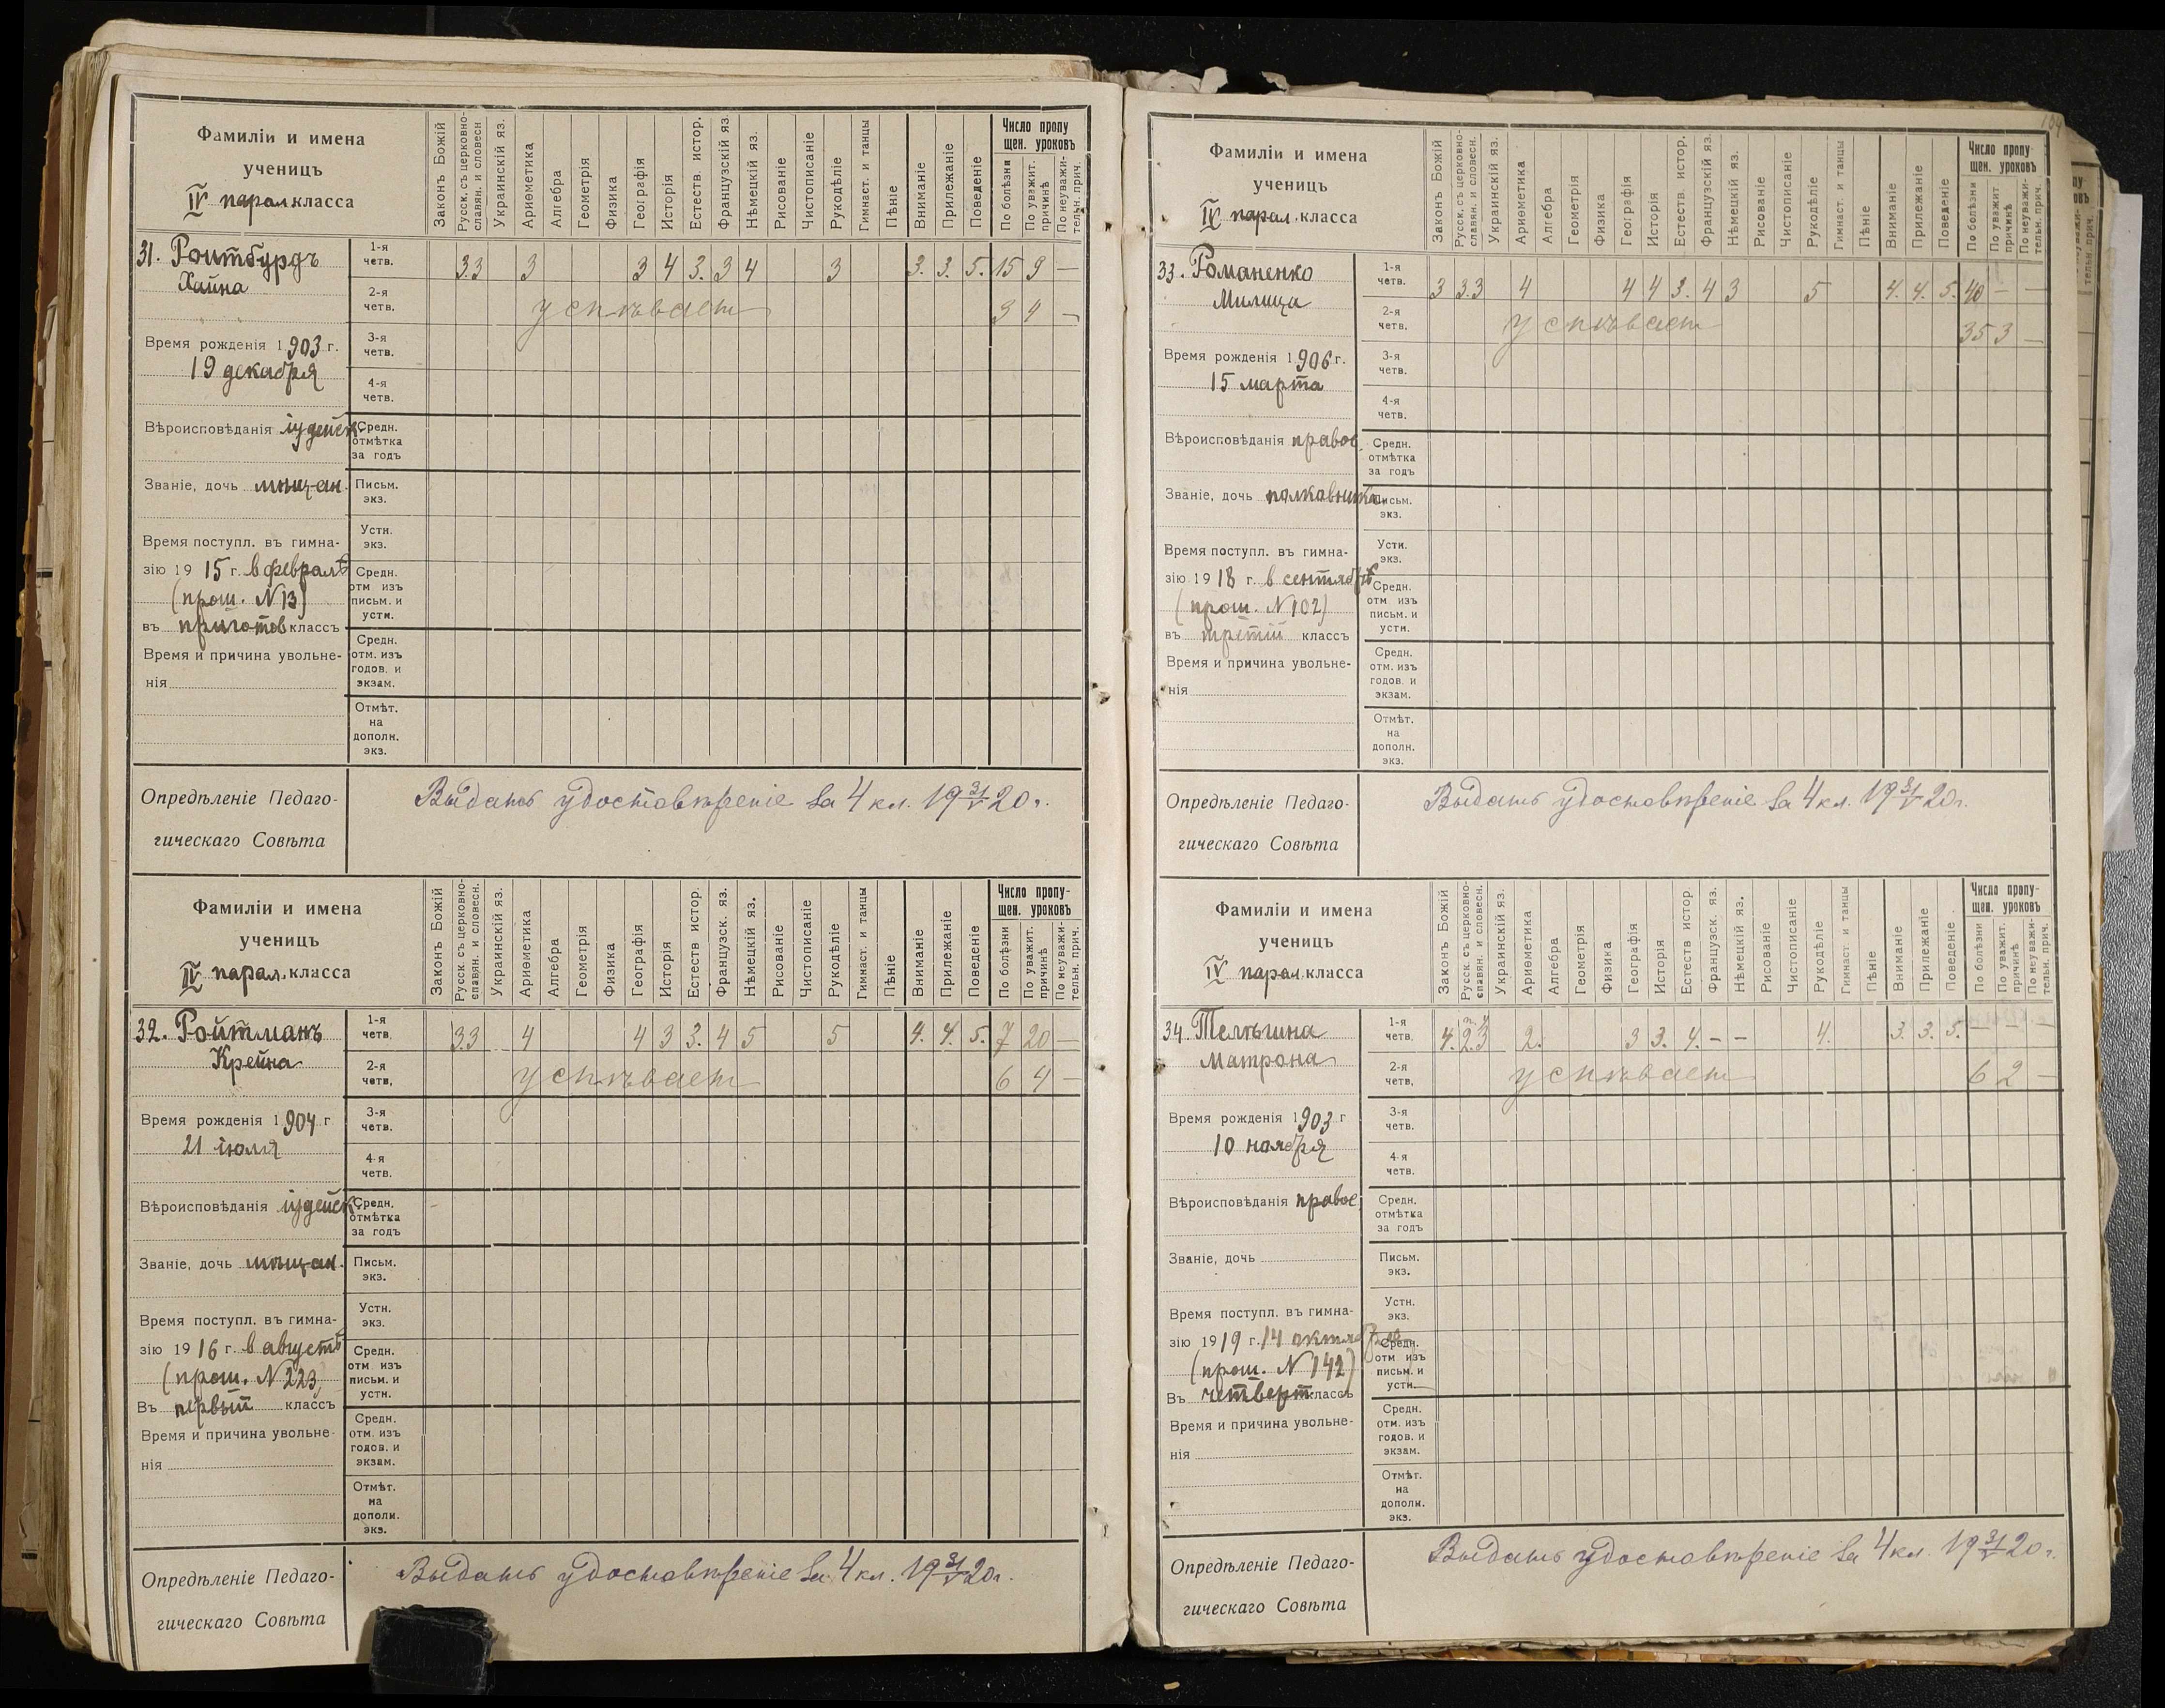 Фамиліи и имена
ученицъ
IV парал. класса
Законъ Божій
Русск. съ церковно-
славян. и словесн
Украинскій яз.
Ариѳметика
Алгебра
Геометрія
Физика
Географія
Исторія
Естеств. истор.
Французскій яз
Нѣмецкій яз.
Рисованіе
Чистописаніе
Рукодѣліе
Гимнаст. и танцы
Пѣніе
Вниманіе
Прилежаніе
Поведеніе
Число пропу
щен. уроковъ
По болѣзни
По уважит.
причинѣ
По неуважи-
тельн. прич.
31. Ройтбурдъ
Хайна
1-я
четв.
3.3 3 3 4 3. 3 4 3 3. 3. 5. 15 9 —
2-я
четв.
успѣвает
3 4 —
Время рожденія 1903 г.
19 декабря
3-я
четв.
4-я
четв.
Вѣроисповѣданія іудейск.
Средн.
отмѣтка
за годъ
Званіе, дочь мѣщан.
Письм.
экз.
Устн.
экз.
Время поступл. въ гимна-
зію 1915 г. в февралѣ
(прош. N 13)
въ приготов классъ
Средн.
отм изъ
письм. и
устн.
Время и причина увольне-
нія
Средн.
отм. изъ
годов. и
экзам.
Отмѣт.
на
дополн.
экз.
Опредѣленіе Педаго-
гическаго Совѣта
Выдать удостовѣреніе за 4 кл. 19 31/V 20 г.
Фамиліи и имена
ученицъ
IV парал. класса
Законъ Божій
Русск. съ церковно-
славян. и словесн.
Украинскій яз.
Ариѳметика
Алгебра
Геометрія
Физика
Географія
Исторія
Естеств истор.
Французск. яз.
Нѣмецкій яз.
Рисованіе
Чистописаніе
Рукодѣліе
Гимнаст. и танцы
Пѣніе
Вниманіе
Прилежаніе
Поведеніе
Число пропу-
щен. уроковъ
По болѣзни
По уважит.
причинѣ
По неуважи-
тельн. прич.
32. Ройтманъ
Крейна
1-я
четв.
3.3 4 4 3 3. 4 5 5 4. 4. 5. 7 20 —
2-я
четв.
успѣвает
6 4 —
Время рожденія 1904 г
21 іюля
3-я
четв.
4-я
четв.
Вѣроисповѣданія іудейск.
Средн.
отмѣтка
за годъ
Званіе, дочь мѣщан.
Письм.
экз.
Устн.
экз.
Время поступл. въ гимна-
зію 1916 г. в августѣ
(прош. N 223)
Въ первый классъ
Средн.
отм изъ
письм. и
устн.
Время и причина увольне-
нія
Средн.
отм. изъ
годов. и
экзам.
Отмѣт.
на
дополн.
экз.
Опредѣленіе Педаго-
гическаго Совѣта
Выдать удостовѣреніе за 4 кл. 19 31/V 20 г.
Фамиліи и имена
ученицъ
IV парал. класса
Законъ Божій
Русск. съ церковно-
славян. и словесн.
Украинскій яз.
Ариѳметика
Алгебра
Геометрія
Физика
Географія
Исторія
Естеств. истор.
Французскій яз.
Нѣмецкій яз.
Рисованіе
Чистописаніе
Рукодѣліе
Гимнаст. и танцы
Пѣніе
Вниманіе
Прилежаніе
Поведеніе
Число пропу-
щен. уроковъ
По болѣзни
По уважит
причинѣ
По неуважи-
тельн. прич.
33. Романенко
Милица
1-я
четв.
3 3.3 4 4 4 3. 4 3 5 4. 4. 5. 40 — —
2-я
четв.
успѣвает
35 3 —
Время рожденія 1906 г.
15 марта
3-я
четв.
4-я
четв.
Вѣроисповѣданія правос.
Средн.
отмѣтка
за годъ
Званіе, дочь полковника
Письм.
экз.
Устн.
экз.
Время поступл. въ гимна-
зію 1918 г. в сентябрѣ
(прош. N 102)
въ третій классъ
Средн.
отм. изъ
письм. и
устн.
Время и причина увольне-
нія
Средн.
отм. изъ
годов. и
экзам.
Отмѣт.
на
дополн.
экз.
Опредѣленіе Педаго-
гическаго Совѣта
Выдать удостовѣреніе за 4 кл. 19 31/V 20 г.
Фамиліи и имена
ученицъ
IV парал. класса
Законъ Божій
Русск. съ церковно-
славян. и словесн.
Украинскій яз.
Ариѳметика
Алгебра
Геометрія
Физика
Географія
Исторія
Естеств истор
Французск. яз.
Нѣмецкій яз.
Рисованіе
Чистописаніе
Рукодѣліе
Гимнаст. и танцы
Пѣніе
Вниманіе
Прилежаніе
Поведеніе
Число пропу-
щен. уроковъ
По болѣзни
По уважит.
причинѣ
По неуважи-
тельн. прич.
34. Телѣгина
Матрона
1-я
четв.
4. 2.3 2. 3 3. 4. — — 4. 3. 3. 5. — — —
2-я
четв.
успѣвает
6 2 —
Время рожденія 1903 г
10 ноября
3-я
четв.
4-я
четв.
Вѣроисповѣданія правос.
Средн.
отмѣтка
за годъ
Званіе, дочь
Письм.
экз.
Устн.
экз.
Время поступл. въ гимна-
зію 1919 г. 14 октября
(прош. N 142)
Въ четверт классъ
Средн.
отм изъ
письм. и
устн.
Время и причина увольне-
нія
Средн.
отм. изъ
годов. и
экзам.
Отмѣт.
на
дополн.
экз.
Опредѣленіе Педаго-
гическаго Совѣта
Выдать удостовѣреніе за 4 кл. 19 31/V 20 г.